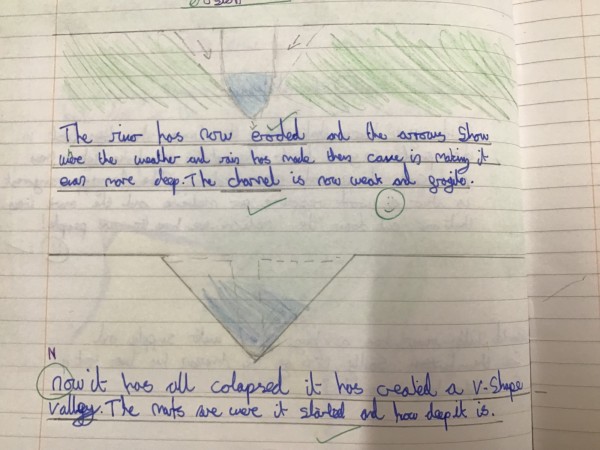 erosion
The river has now eroded and the arrows show
were the weather and rain has made them cave in making it
even more deep. The channel is now weak and fragile.
N
now it has all colapsed it has created a V-Shape
Valley. The marks are were it started and how deep it is.